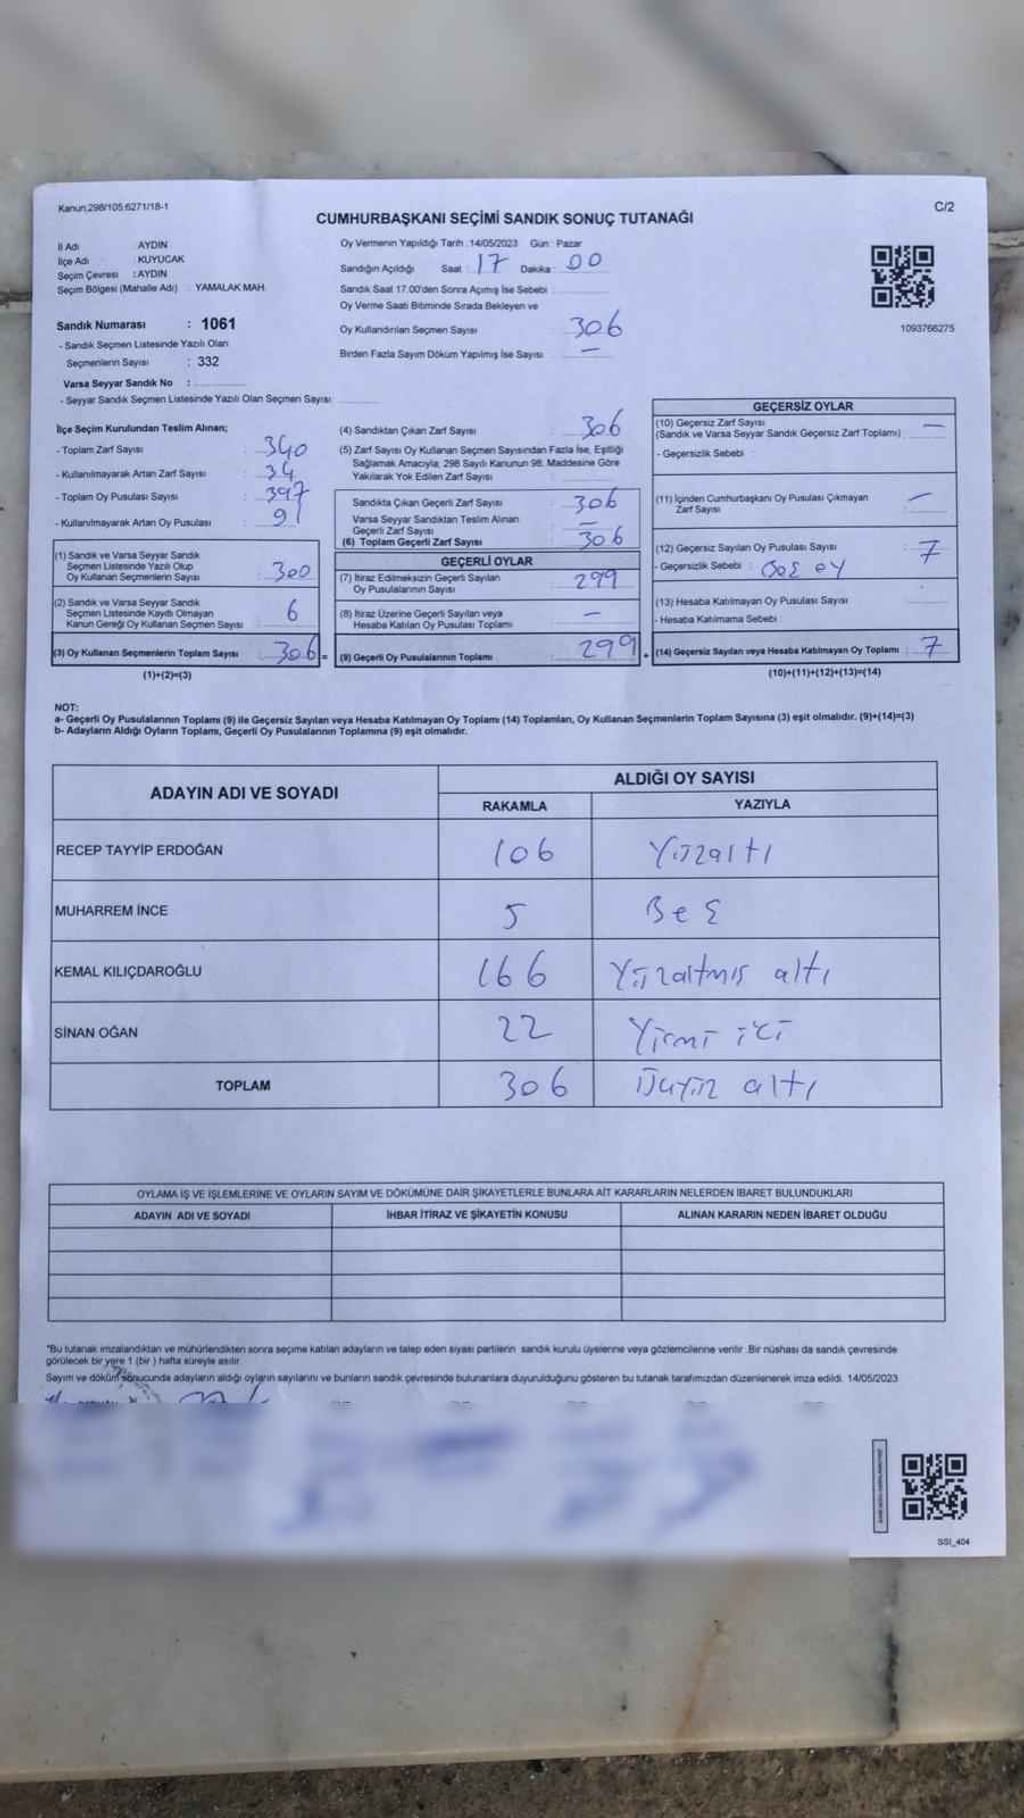 Kanun:298/105,6271/18-1
C/2
CUMHURBAŞKANI SEÇİMİ SANDIK SONUÇ TUTANAĞI
İl Adı AYDIN
İlçe Adı KUYUCAK
Seçim Çevresi : AYDIN
Seçim Bölgesi (Mahalle Adı) : YAMALAK MAH.
Sandık Numarası : 1061
- Sandık Seçmen Listesinde Yazılı Olan
Seçmenlerin Sayısı : 332
Varsa Seyyar Sandık No :
- Seyyar Sandık Seçmen Listesinde Yazılı Olan Seçmen Sayısı
Oy Vermenin Yapıldığı Tarih : 14/05/2023 Gün : Pazar
Sandığın Açıldığı Saat : 17 Dakika : 00
Sandık Saat 17.00'den Sonra Açımış İse Sebebi :
Oy Verme Saati Bitiminde Sırada Bekleyen ve
Oy Kullandırılan Seçmen Sayısı 306
Birden Fazla Sayım Döküm Yapılmış İse Sayısı —
1093766275
İlçe Seçim Kurulundan Teslim Alınan;
- Toplam Zarf Sayısı : 340
- Kullanılmayarak Artan Zarf Sayısı : 34
- Toplam Oy Pusulası Sayısı : 397
- Kullanılmayarak Artan Oy Pusulası : 91
(1) Sandık ve Varsa Seyyar Sandık
Seçmen Listesinde Yazılı Olup
Oy Kullanan Seçmenlerin Sayısı : 300
(2) Sandık ve Varsa Seyyar Sandık
Seçmen Listesinde Kayıtlı Olmayan
Kanun Gereği Oy Kullanan Seçmen Sayısı 6
(3) Oy Kullanan Seçmenlerin Toplam Sayısı 306 =
(1)+(2)=(3)
(4) Sandıktan Çıkan Zarf Sayısı 306
(5) Zarf Sayısı Oy Kullanan Seçmen Sayısından Fazla İse, Eşitliği
Sağlamak Amacıyla, 298 Sayılı Kanunun 98. Maddesine Göre
Yakılarak Yok Edilen Zarf Sayısı
Sandıkta Çıkan Geçerli Zarf Sayısı 306
Varsa Seyyar Sandıktan Teslim Alınan
Geçerli Zarf Sayısı —
(6) Toplam Geçerli Zarf Sayısı 306
GEÇERLİ OYLAR
(7) İtiraz Edilmeksizin Geçerli Sayılan
Oy Pusulalarının Sayısı 299
(8) İtiraz Üzerine Geçerli Sayılan veya
Hesaba Katılan Oy Pusulası Toplamı —
(9) Geçerli Oy Pusulalarının Toplamı 299 +
GEÇERSİZ OYLAR
(10) Geçersiz Zarf Sayısı —
(Sandık ve Varsa Seyyar Sandık Geçersiz Zarf Toplamı)
- Geçersizlik Sebebi
(11) İçinden Cumhurbaşkanı Oy Pusulası Çıkmayan —
Zarf Sayısı
(12) Geçersiz Sayılan Oy Pusulası Sayısı : 7
- Geçersizlik Sebebi : Boş oy
(13) Hesaba Katılmayan Oy Pusulası Sayısı
- Hesaba Katılmama Sebebi :
(14) Geçersiz Sayılan veya Hesaba Katılmayan Oy Toplamı : 7
(10)+(11)+(12)+(13)=(14)
NOT:
a- Geçerli Oy Pusulalarının Toplamı (9) ile Geçersiz Sayılan veya Hesaba Katılmayan Oy Toplamı (14) Toplamları, Oy Kullanan Seçmenlerin Toplam Sayısına (3) eşit olmalıdır. (9)+(14)=(3)
b- Adayların Aldığı Oyların Toplamı, Geçerli Oy Pusulalarının Toplamına (9) eşit olmalıdır.
ADAYIN ADI VE SOYADI
ALDIĞI OY SAYISI
RAKAMLA YAZIYLA
RECEP TAYYİP ERDOĞAN 106 Yüzaltı
MUHARREM İNCE 5 Beş
KEMAL KILIÇDAROĞLU 166 Yüzaltmış altı
SİNAN OĞAN 22 Yirmi iki
TOPLAM 306 Üçyüz altı
OYLAMA İŞ VE İŞLEMLERİNE VE OYLARIN SAYIM VE DÖKÜMÜNE DAİR ŞİKAYETLERLE BUNLARA AİT KARARLARIN NELERDEN İBARET BULUNDUKLARI
ADAYIN ADI VE SOYADI İHBAR İTİRAZ VE ŞİKAYETİN KONUSU ALINAN KARARIN NEDEN İBARET OLDUĞU
*Bu tutanak imzalandıktan ve mühürlendikten sonra seçime katılan adayların ve talep eden siyasi partilerin sandık kurulu üyelerine veya gözlemcilerine verilir. Bir nüshası da sandık çevresinde
görülecek bir yere 1 (bir) hafta süreyle asılır.
Sayım ve döküm sonucunda adayların aldığı oyların sayılarını ve bunların sandık çevresinde bulunanlara duyurulduğunu gösteren bu tutanak tarafımızdan düzenlenerek imza edildi. 14/05/2023
SSI_404